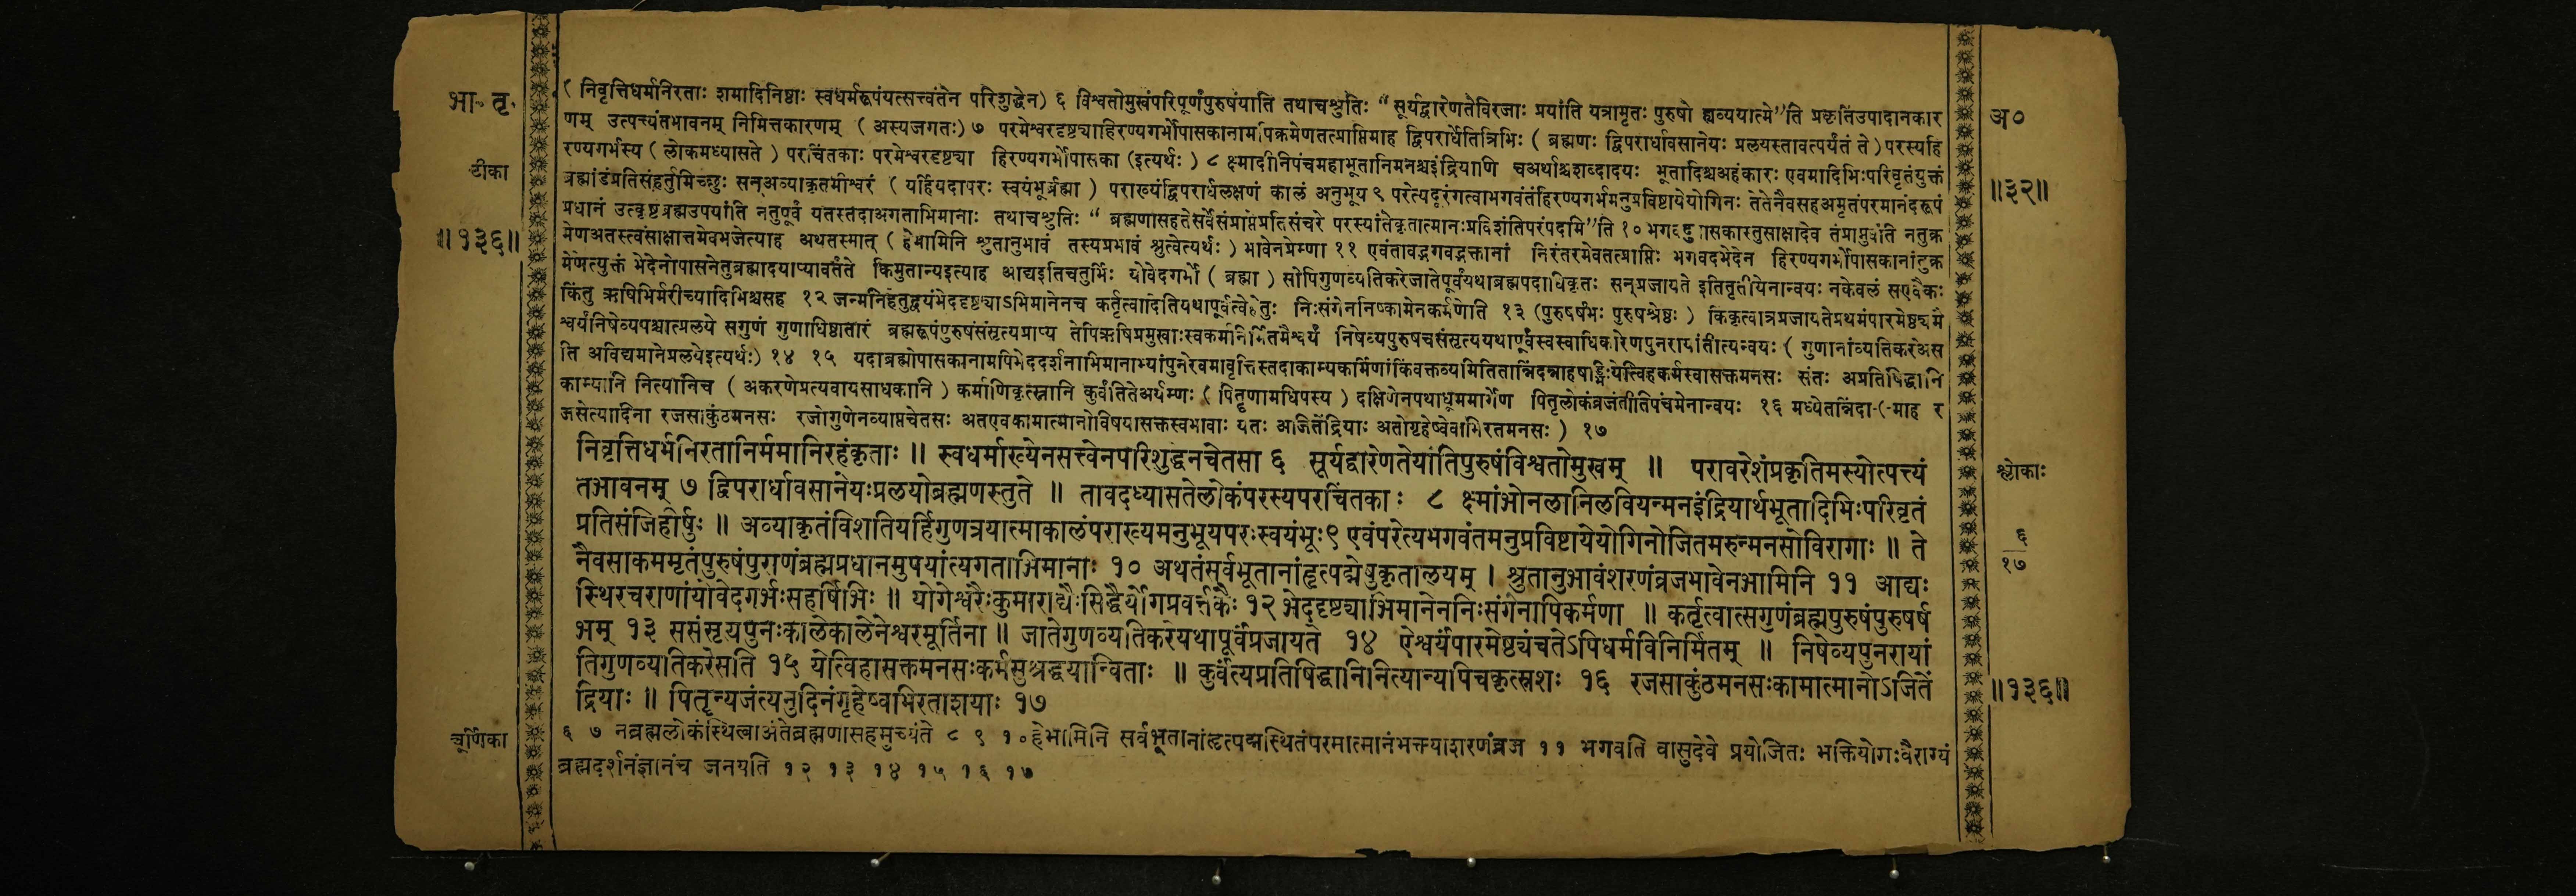 भा॰ तृ॰
टीका
॥१३६॥
(निवृत्तिधर्मानिरताः शमादिनिष्ठाः स्वधर्मरूपंयत्सत्त्वंतेन परिशुद्धेन) ६ विश्वतोमुखंपरिपूर्णंपुरुषंयाति तथाचश्रुतिः “सूर्यद्वारेणतेविरजाः प्रयांति यत्रामृतः पुरुषो ह्यव्ययात्मे”ति प्रकृतिंउपादानकार
णम् उत्पत्त्यंतभावनम् निमित्तकारणम् (अस्यजगतः) ७ परमेश्वरदृष्ट्याहिरण्यगर्भोपासकानामपिक्रमेणतत्प्राप्तिमाह द्विपरार्धेतित्रिभिः (ब्रह्मणः द्विपरार्धावसानेयः प्रलयस्तावत्पर्यंतं ते) परस्यहि
रण्यगर्भस्य (लोकमध्यासते) परचिंतकाः परमेश्वरदृष्ट्या हिरण्यगर्भोपासका (इत्यर्थः) ८ क्ष्मादीनिपंचमहाभूतानिमनश्चइंद्रियाणि चअर्थाश्चशब्दादयः भूतादिश्चअहंकारः एवमादिभिःपरिवृतंयुक्तं
ब्रह्मांडंप्रतिसंहर्तुमिच्छुः सन्अव्याकृतमीश्वरं (यर्हियदापरः स्वयंभूर्ब्रह्मा) पराख्यंद्विपरार्धलक्षणं कालं अनुभूय ९ परेत्यदूरंगत्वाभगवंतंहिरण्यगर्भमनुप्रविष्टायेयोगिनः तेतेनैवसहअमृतंपरमानंदरूपं
प्रधानं उत्कृष्टंब्रह्मउपयांति नतुपूर्वं यतस्तदाअगताभिमानाः तथाचश्रुतिः “ब्रह्मणासहतेसर्वेसंप्राप्तेप्रतिसंचरे परस्यांतेकृतात्मानःप्रविशंतिपरंपदमि”ति १० भगवदुपासकास्तुसाक्षादेव तंप्राप्नुवंति नतुक्र
मेणअतस्त्वंसाक्षात्तमेवभजेत्याह अथतस्मात् (हेभामिनि श्रुतानुभावं तस्यप्रभावं श्रुत्वेत्यर्थः) भावेनप्रेम्णा ११ एवंतावद्भगवद्भक्तानां निरंतरमेवतत्प्राप्तिः भगवदभेदेन हिरण्यगर्भोपासकानांतुक्र
मेणेत्युक्तं भेदेनोपासनेतुब्रह्मादयाप्यावर्तंते किमुतान्यइत्याह आद्यइतिचतुर्भिः योवेदगर्भो (ब्रह्मा) सोपिगुणव्यतिकरेजातेपूर्वंयथाब्रह्मपदाधिकृतः सन्प्रजायते इतितृतीयेनान्वयः नकेवलं सएवैकः
किंतु ऋषिभिर्मरीच्यादिभिश्चसह १२ जन्मनिहेतुद्वयंभेददृष्ट्याऽभिमानेनच कर्तृत्वादितियथापूर्वत्वेहेतुः निःसंगेननिष्कामेनकर्मणेति १३ (पुरुषर्षभः पुरुषश्रेष्ठः) किंकृत्वात्रप्रजायतेप्रथमंपारमेष्ठ्यमै
श्वर्यंनिषेव्यपश्चात्प्रलये सगुणं गुणाधिष्ठातारं ब्रह्मरूपंपुरुषंसंसृत्यप्राप्य तेपिऋषिप्रमुखाःस्वकर्मानिर्मितमैश्वर्यं निषेव्यपुरुषंचसंसृत्ययथापूर्वंस्वस्वाधिकारेणपुनरायांतीत्यन्वयः (गुणानांव्यतिकरेअस
ति अविद्यमानेप्रलयेइत्यर्थः) १४ १५ यदाब्रह्मोपासकानामपिभेददर्शनाभिमानाभ्यांपुनरेवमावृत्तिस्तदाकाम्यकर्मिणांकिंवक्तव्यमितितान्निंदन्नाहषड्भिःयेत्विहकर्मस्वासक्तमनसः संतः अप्रतिषिद्धानि
काम्यानि नित्यानिच (अकरणेप्रत्यवायसाधकानि) कर्माणिकृत्स्नानि कुर्वंतितेअर्यम्णः (पितॄणामधिपस्य) दक्षिणेनपथाधूममार्गेण पितृलोकंव्रजंतीतिपंचमेनान्वयः १६ मध्येतन्निंदा-(-माह र
जसेत्यादिना रजसाकुंठमनसः रजोगुणेनव्याप्तचेतसः अतएवकामात्मानोविषयासक्तस्वभावाः यतः अजितेंद्रियाः अतोगृहेष्वेवाभिरतमनसः) १७
निवृत्तिधर्मनिरतानिर्ममानिरहंकृताः ॥ स्वधर्माख्येनसत्त्वेनपरिशुद्धेनचेतसा ६ सूर्यद्वारेणतेयांतिपुरुषंविश्वतोमुखम् ॥ परावरेशंप्रकृतिमस्योत्पत्त्यं
तभावनम् ७ द्विपरार्धावसानेयःप्रलयोब्रह्मणस्तुते ॥ तावदध्यासतेलोकंपरस्यपरचिंतकाः ८ क्ष्मांभोनलानिलवियन्मनइंद्रियार्थभूतादिभिःपरिवृतं
प्रतिसंजिहीर्षुः ॥ अव्याकृतंविशतियर्हिगुणत्रयात्माकालंपराख्यमनुभूयपरःस्वयंभूः९ एवंपरेत्यभगवंतमनुप्रविष्टायेयोगिनोजितमरुन्मनसोविरागाः ॥ ते
नैवसाकममृतंपुरुषंपुराणंब्रह्मप्रधानमुपयांत्यगताभिमानाः १० अथतंसर्वभूतानांहृत्पद्मेषुकृतालयम् । श्रुतानुभावंशरणंव्रजभावेनभामिनि ११ आद्यः
स्थिरचराणांयोवेदगर्भःसहर्षिभिः ॥ योगेश्वरैःकुमाराद्यैःसिद्धैर्योगप्रवर्त्तकैः १२ भेददृष्ट्याभिमानेननिःसंगेनापिकर्मणा ॥ कर्तृत्वात्सगुणंब्रह्मपुरुषंपुरुषर्ष
भम् १३ ससंसृत्यपुनःकालेकालेनेश्वरमूर्तिना ॥ जातेगुणव्यतिकरेयथापूर्वंप्रजायते १४ ऐश्वर्यंपारमेष्ठ्यंचतेऽपिधर्मविनिर्मितम् ॥ निषेव्यपुनरायां
तिगुणव्यतिकरेसति १५ येत्विहासक्तमनसःकर्मसुश्रद्धयान्विताः ॥ कुर्वंत्यप्रतिषिद्धानिनित्यान्यपिचकृत्स्नशः १६ रजसाकुंठमनसःकामात्मानोऽजितें
द्रियाः ॥ पितॄन्यजंत्यनुदिनंगृहेष्वभिरताशयाः १७
चूर्णिका
६ ७ नब्रह्मलोकंस्थित्वाअंतेब्रह्मणासहमुच्यंते ८ ९ १०हेभामिनि सर्वभूतानांहृत्पद्मस्थितंपरमात्मानंभक्त्याशरणंव्रज ११ भगवति वासुदेवे प्रयोजितः भक्तियोगःवैराग्यं
ब्रह्मदर्शनंज्ञानंच जनयति १२ १३ १४ १५ १६ १७
अ०
॥३२॥
श्लोकाः
६
१७
॥१३६॥